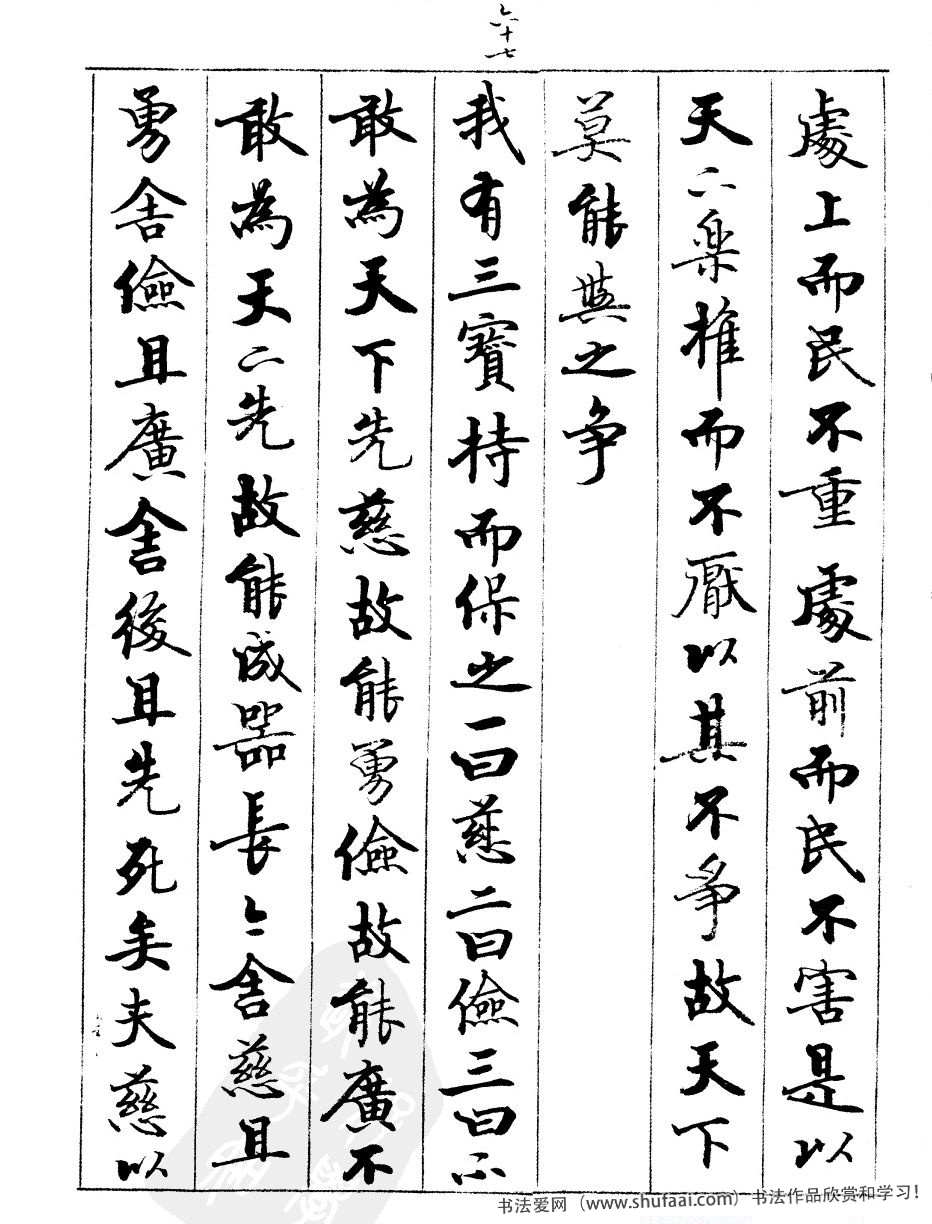 六十七
處上而民不重處前而民不害是以
天下楽推而不厭以其不爭故天下
莫能與之争
我有三寶持而保之一曰慈二曰儉三曰不
敢為天下先慈故能勇儉故能廣不
敢為天下先故能成器長今舍慈且
勇舍儉且廣舍後且先死矣夫慈以
书法爱网（www.shufaai.com）书法作品欣赏和学习！